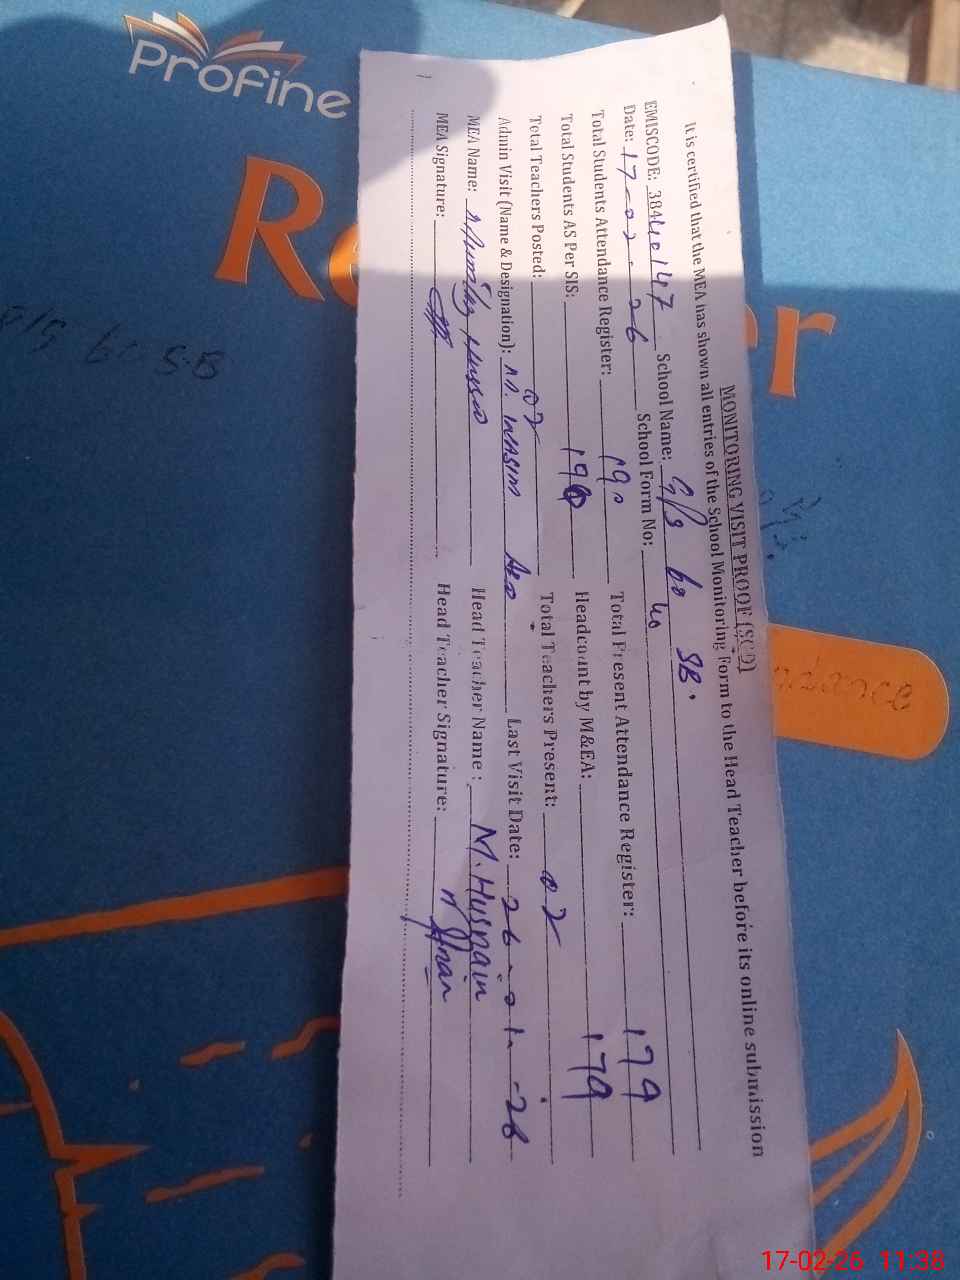 Profine
Re er
ndance
S.B
MONITORING VISIT PROOF (SCD)
It is certified that the MEA has shown all entries of the School Monitoring Form to the Head Teacher before its online submission
EMISCODE: 38440147 School Name: G/S 60 SB.
Date: 17-02-26 School Form No: 40
Total Students Attendance Register: 190 Total Present Attendance Register: 179
Total Students AS Per SIS: 190 Headcount by M&EA: 179
Total Teachers Posted: 02 Total Teachers Present: 02
Admin Visit (Name & Designation): WASIM AEO Last Visit Date: 26-01-26
MEA Name: Head Teacher Name: M. Husnain
MEA Signature: Head Teacher Signature:
17-02-26 11:38